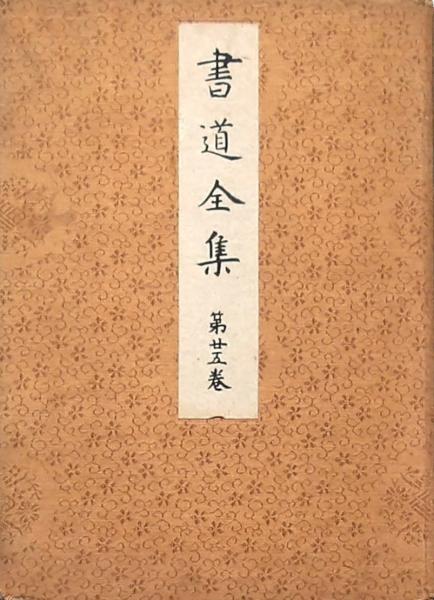 書道全集 第廿五卷